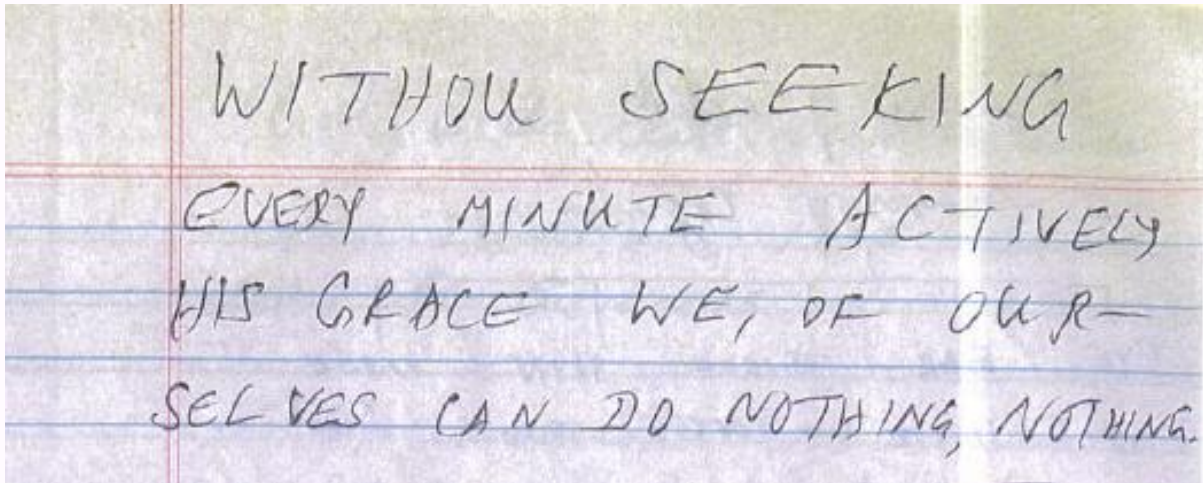 WITHOU SEEKING
EVERY MINUTE ACTIVELY
HIS GRACE WE, OF OUR-
SELVES CAN DO NOTHING, NOTHING.